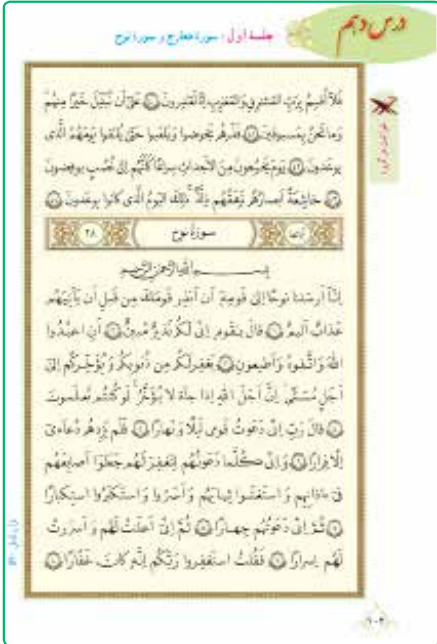 درس دهم
جلسهٔ اول: سورهٔ معارج و سورهٔ نوح
فَلا أُقسِمُ بِرَبِّ المَشارِقِ وَالمَغارِبِ إِنّا لَقادِرونَ ﴿٤٠﴾ عَلىٰ أَن نُبَدِّلَ خَيرًا مِنهُم
وَما نَحنُ بِمَسبوقينَ ﴿٤١﴾ فَذَرهُم يَخوضوا وَيَلعَبوا حَتّىٰ يُلاقوا يَومَهُمُ الَّذي
يوعَدونَ ﴿٤٢﴾ يَومَ يَخرُجونَ مِنَ الأَجداثِ سِراعًا كَأَنَّهُم إِلىٰ نُصُبٍ يوفِضونَ
﴿٤٣﴾ خاشِعَةً أَبصارُهُم تَرهَقُهُم ذِلَّةٌ ذٰلِكَ اليَومُ الَّذي كانوا يوعَدونَ ﴿٤٤﴾
سورة نوح
٢٨
بِسمِ اللهِ الرَّحمٰنِ الرَّحيمِ
إِنّا أَرسَلنا نوحًا إِلىٰ قَومِهِ أَن أَنذِر قَومَكَ مِن قَبلِ أَن يَأتِيَهُم
عَذابٌ أَليمٌ ﴿١﴾ قالَ يٰقَومِ إِنّي لَكُم نَذيرٌ مُبينٌ ﴿٢﴾ أَنِ اعبُدُوا
اللهَ وَاتَّقوهُ وَأَطيعونِ ﴿٣﴾ يَغفِر لَكُم مِن ذُنوبِكُم وَيُؤَخِّركُم إِلىٰ
أَجَلٍ مُسَمًّى إِنَّ أَجَلَ اللهِ إِذا جاءَ لا يُؤَخَّرُ لَو كُنتُم تَعلَمونَ
﴿٤﴾ قالَ رَبِّ إِنّي دَعَوتُ قَومي لَيلًا وَنَهارًا ﴿٥﴾ فَلَم يَزِدهُم دُعاءي
إِلّا فِرارًا ﴿٦﴾ وَإِنّي كُلَّما دَعَوتُهُم لِتَغفِرَ لَهُم جَعَلوا أَصابِعَهُم
في ءاذانِهِم وَاستَغشَوا ثِيابَهُم وَأَصَرّوا وَاستَكبَرُوا استِكبارًا
﴿٧﴾ ثُمَّ إِنّي دَعَوتُهُم جِهارًا ﴿٨﴾ ثُمَّ إِنّي أَعلَنتُ لَهُم وَأَسرَرتُ
لَهُم إِسرارًا ﴿٩﴾ فَقُلتُ استَغفِروا رَبَّكُم إِنَّهُ كانَ غَفّارًا ﴿١٠﴾